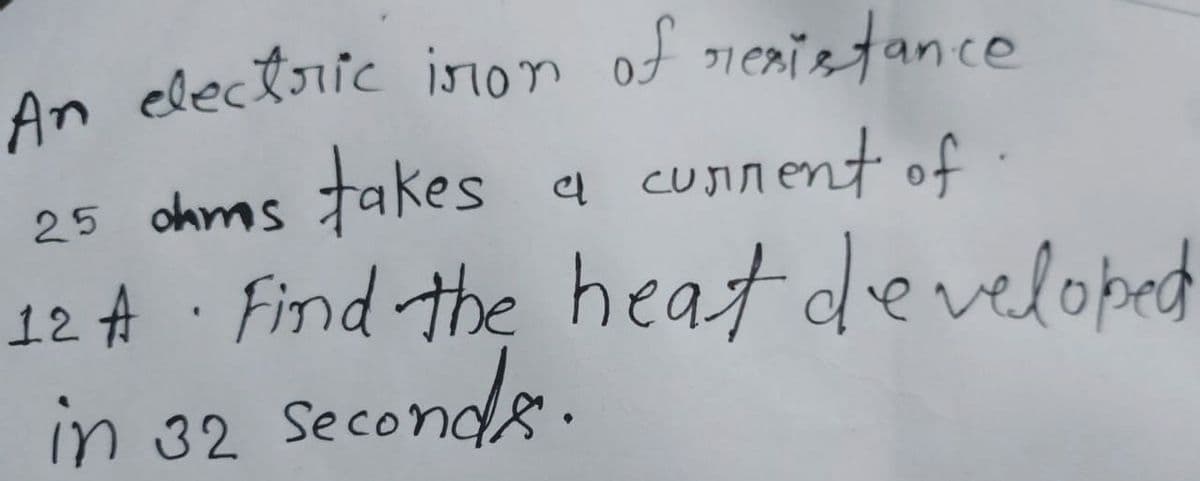 An electric iron of resistance
25 ohms takes a current of
12 A. Find the heat developed
in 32 seconds.